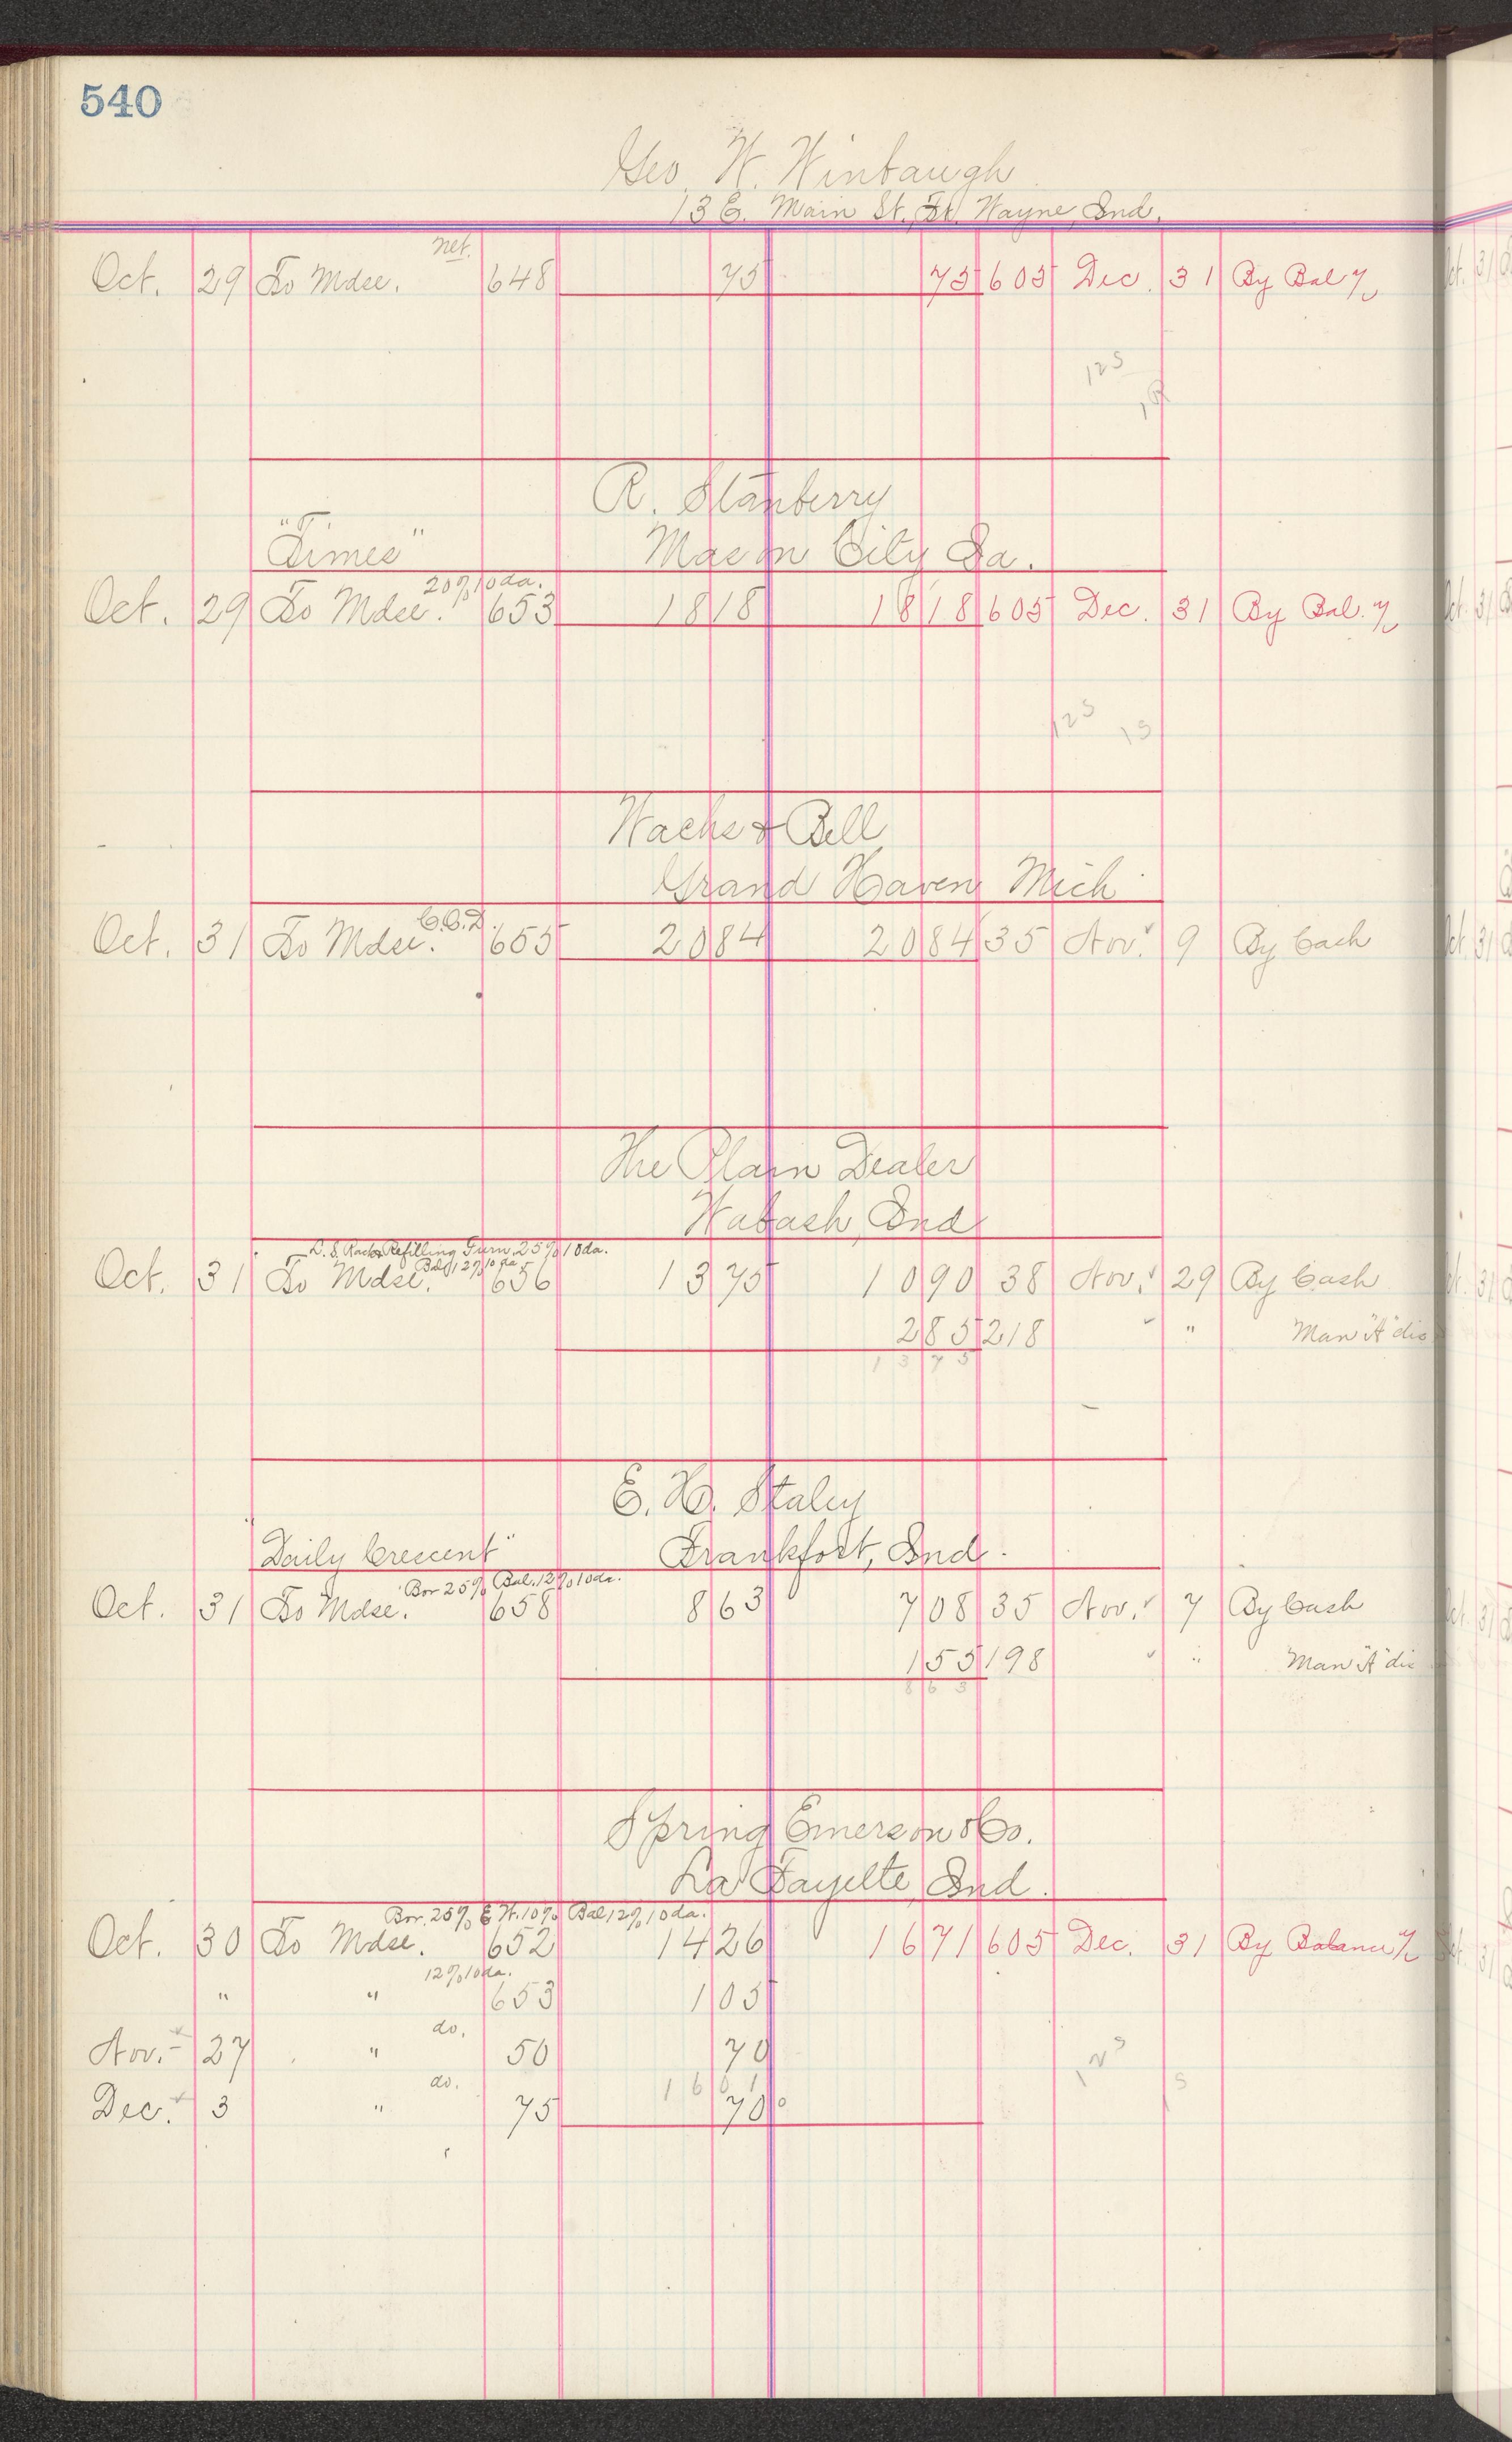 540
Geo. W. Winbaugh
13 E. Main St. Ft. Wayne, Ind.
net.
Oct. 29 To Mdse. 648 75 75 605 Dec. 31 By Bal %
125
R. Stanberry
"Times" Mason City Ia.
20% 10 da.
Oct. 29 To Mdse. 653 18 18 18 18 605 Dec. 31 By Bal. %
125 15
Wachs & Bell
Grand Haven Mich
C.O.D.
Oct. 31 To Mdse. 655 20 84 20 84 35 Nov. 9 By Cash
The Plain Dealer
Wabash, Ind
L. S. Racks Refilling Furn. 25% 10 da.
Bal. 12% 10 da
Oct. 31 To Mdse. 656 13 75 10 90 38 Nov. 29 By Cash
2 85 218 " Man "A" dis
13 75
E. H. Staley
Daily Crescent" Frankfort, Ind.
Bor 25% Bal. 12% 10 da.
Oct. 31 To Mdse. 658 8 63 7 08 35 Nov. 7 By Cash
1 55 198 " Man "A" dis
8 63
Spring Emerson & Co.
La Fayette, Ind.
Bor. 25% E. W. 10% Bal 12% 10 da.
Oct. 30 To Mdse. 652 14 26 16 71 605 Dec. 31 By Balance %
12% 10 da.
" " 653 1 05
do.
Nov. 27 " 50 70
do.
Dec. 3 " 75 70